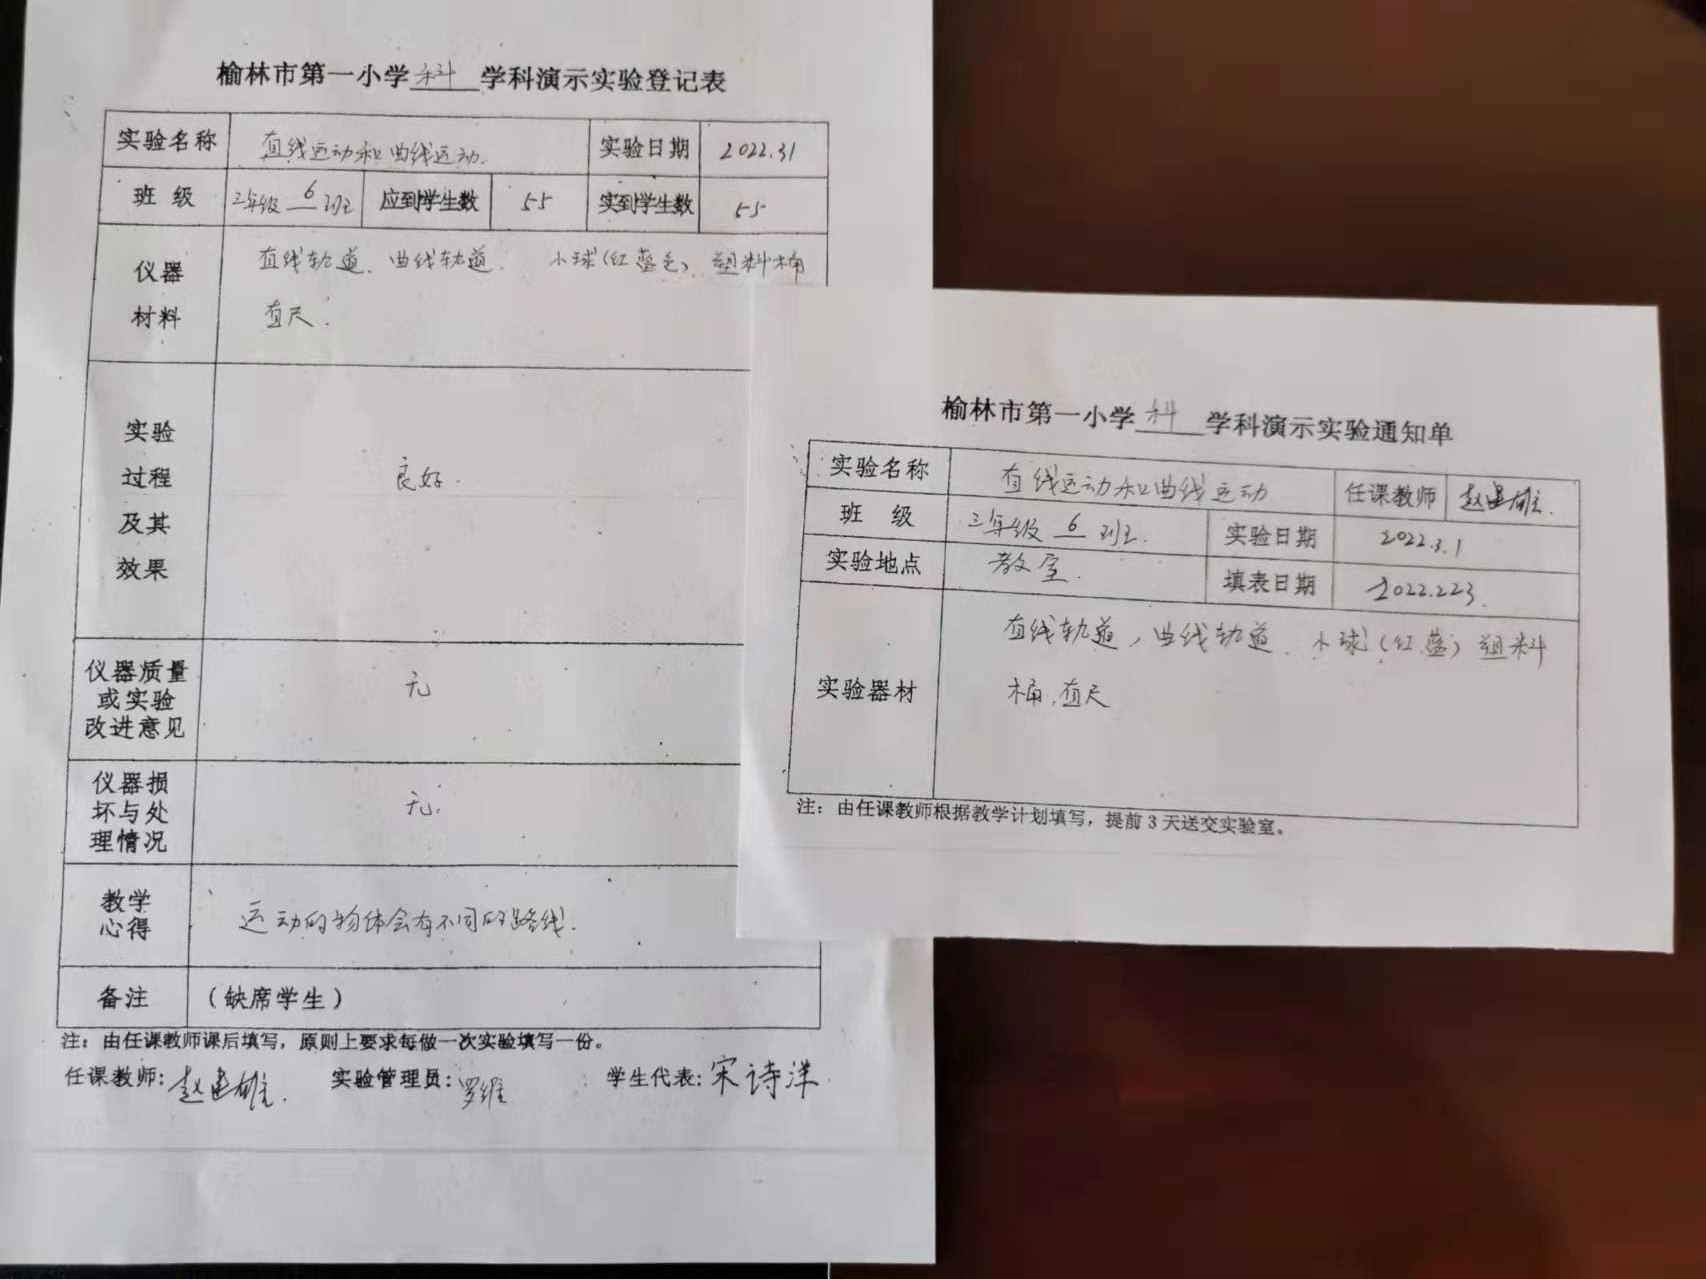 榆林市第一小学科学科演示实验登记表
实验名称 直线运动和曲线运动. 实验日期 2022.31
班 级 三年级 6 班 应到学生数 55 实到学生数 55
仪器材料 直线轨道、曲线轨道. 小球(红蓝色)、塑料桶
直尺.
实验
过程
及其
效果
良好.
仪器质量
或实验
改进意见
无
仪器损
坏与处
理情况
无.
教学
心得
运动的物体会有不同的路线.
备注 (缺席学生)
注：由任课教师课后填写，原则上要求每做一次实验填写一份。
任课教师: 赵建雄. 实验管理员: 罗维 学生代表: 宋诗洋
榆林市第一小学科学科演示实验通知单
实验名称 直线运动和曲线运动 任课教师 赵建雄.
班 级 三年级 6 班. 实验日期 2022.3.1
实验地点 教室. 填表日期 2022.223.
实验器材 直线轨道，曲线轨道、小球(红.蓝)塑料
桶.直尺
注：由任课教师根据教学计划填写，提前3天送交实验室。